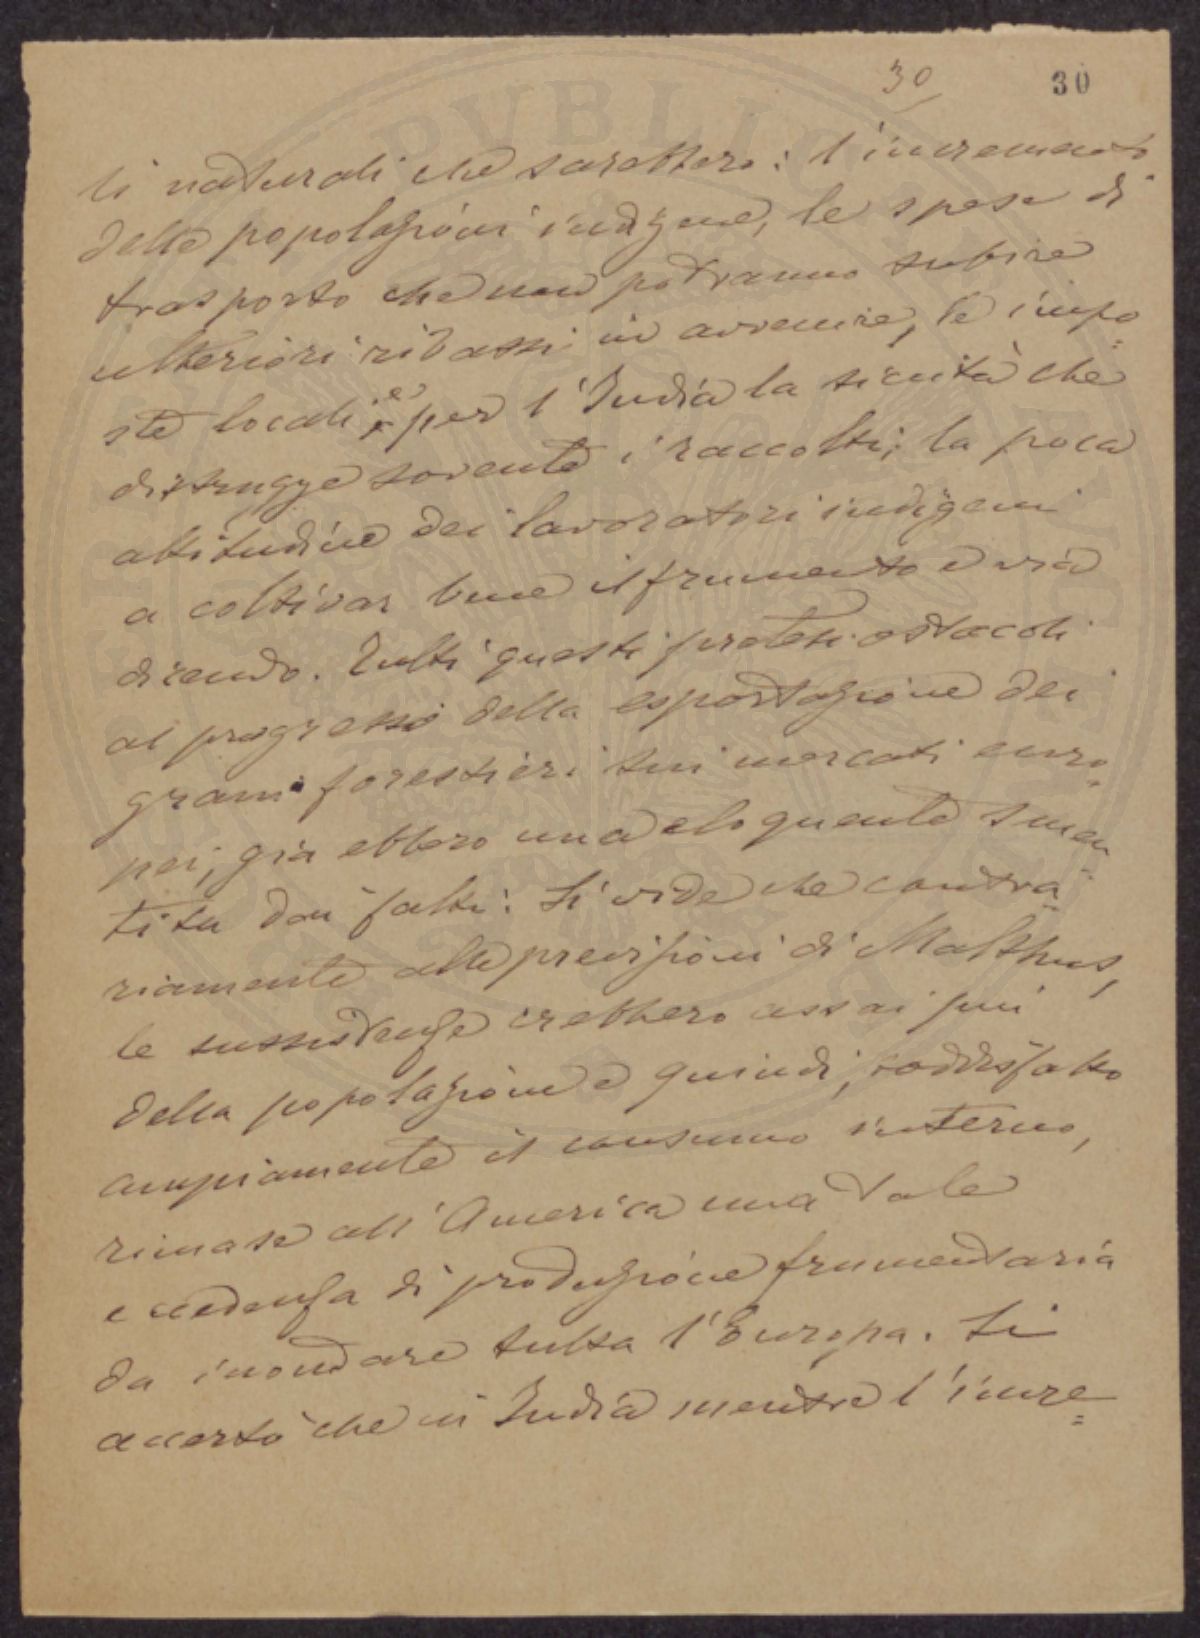 30 30
li naturali che sarebbero: l'incremento
delle popolazioni indigene, le spese di
trasporto che non potranno subire
ulteriori ribassi in avvenire, le impo=
ste locali e per l'India la siccità che
distrugge sovente i raccolti; la poca
attitudine dei lavoratori indigeni
a coltivar bene il frumento e via
dicendo. Tutti questi pretesi ostacoli
al progresso della esportazione dei
grani forestieri sui mercati euro=
pei, già ebbero una eloquente smen
tita dai fatti: Si vide che contra=
riamente alle previsioni di Malthus,
le sussistenze crebbero assai più
della popolazione e quindi, soddisfatto
ampiamente il consumo interno,
rimase all'America una tale
eccedenza di produzione frumentaria
da inondare tutta l'Europa. Si
accertò che in India mentre l'incre=